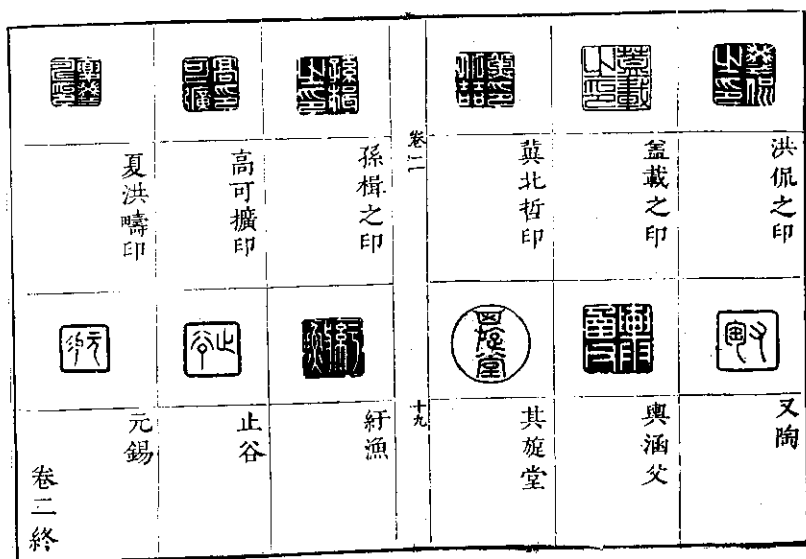 洪侃之印
又陶
蓋載之印
輿涵父
冀北哲印
其旋堂
卷二
十九
孫楫之印
紆漁
高可擴印
止谷
夏洪疇印
元錫
卷二終